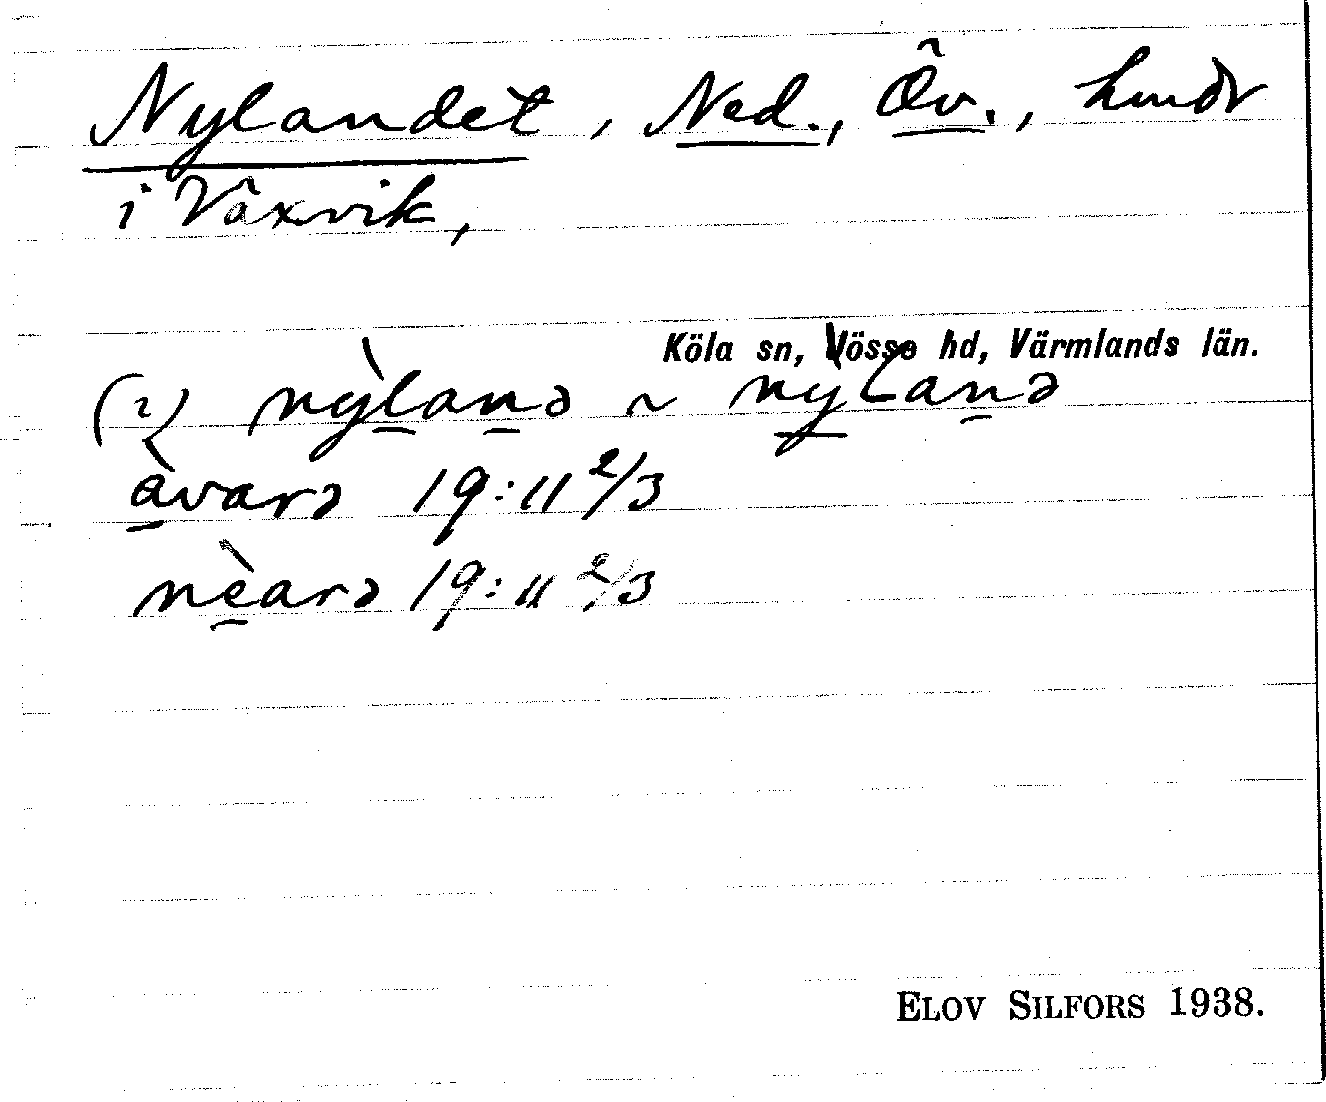 Nylandet, Ned., Öv., hmdr
i Växvik,
Köla sn, Jösse hd, Värmlands län.
(2) nỳlanə ~ nỳLanə
àvarə 19:11 2/3
nèarə 19:11 2/3
ELOV SILFORS 1938.